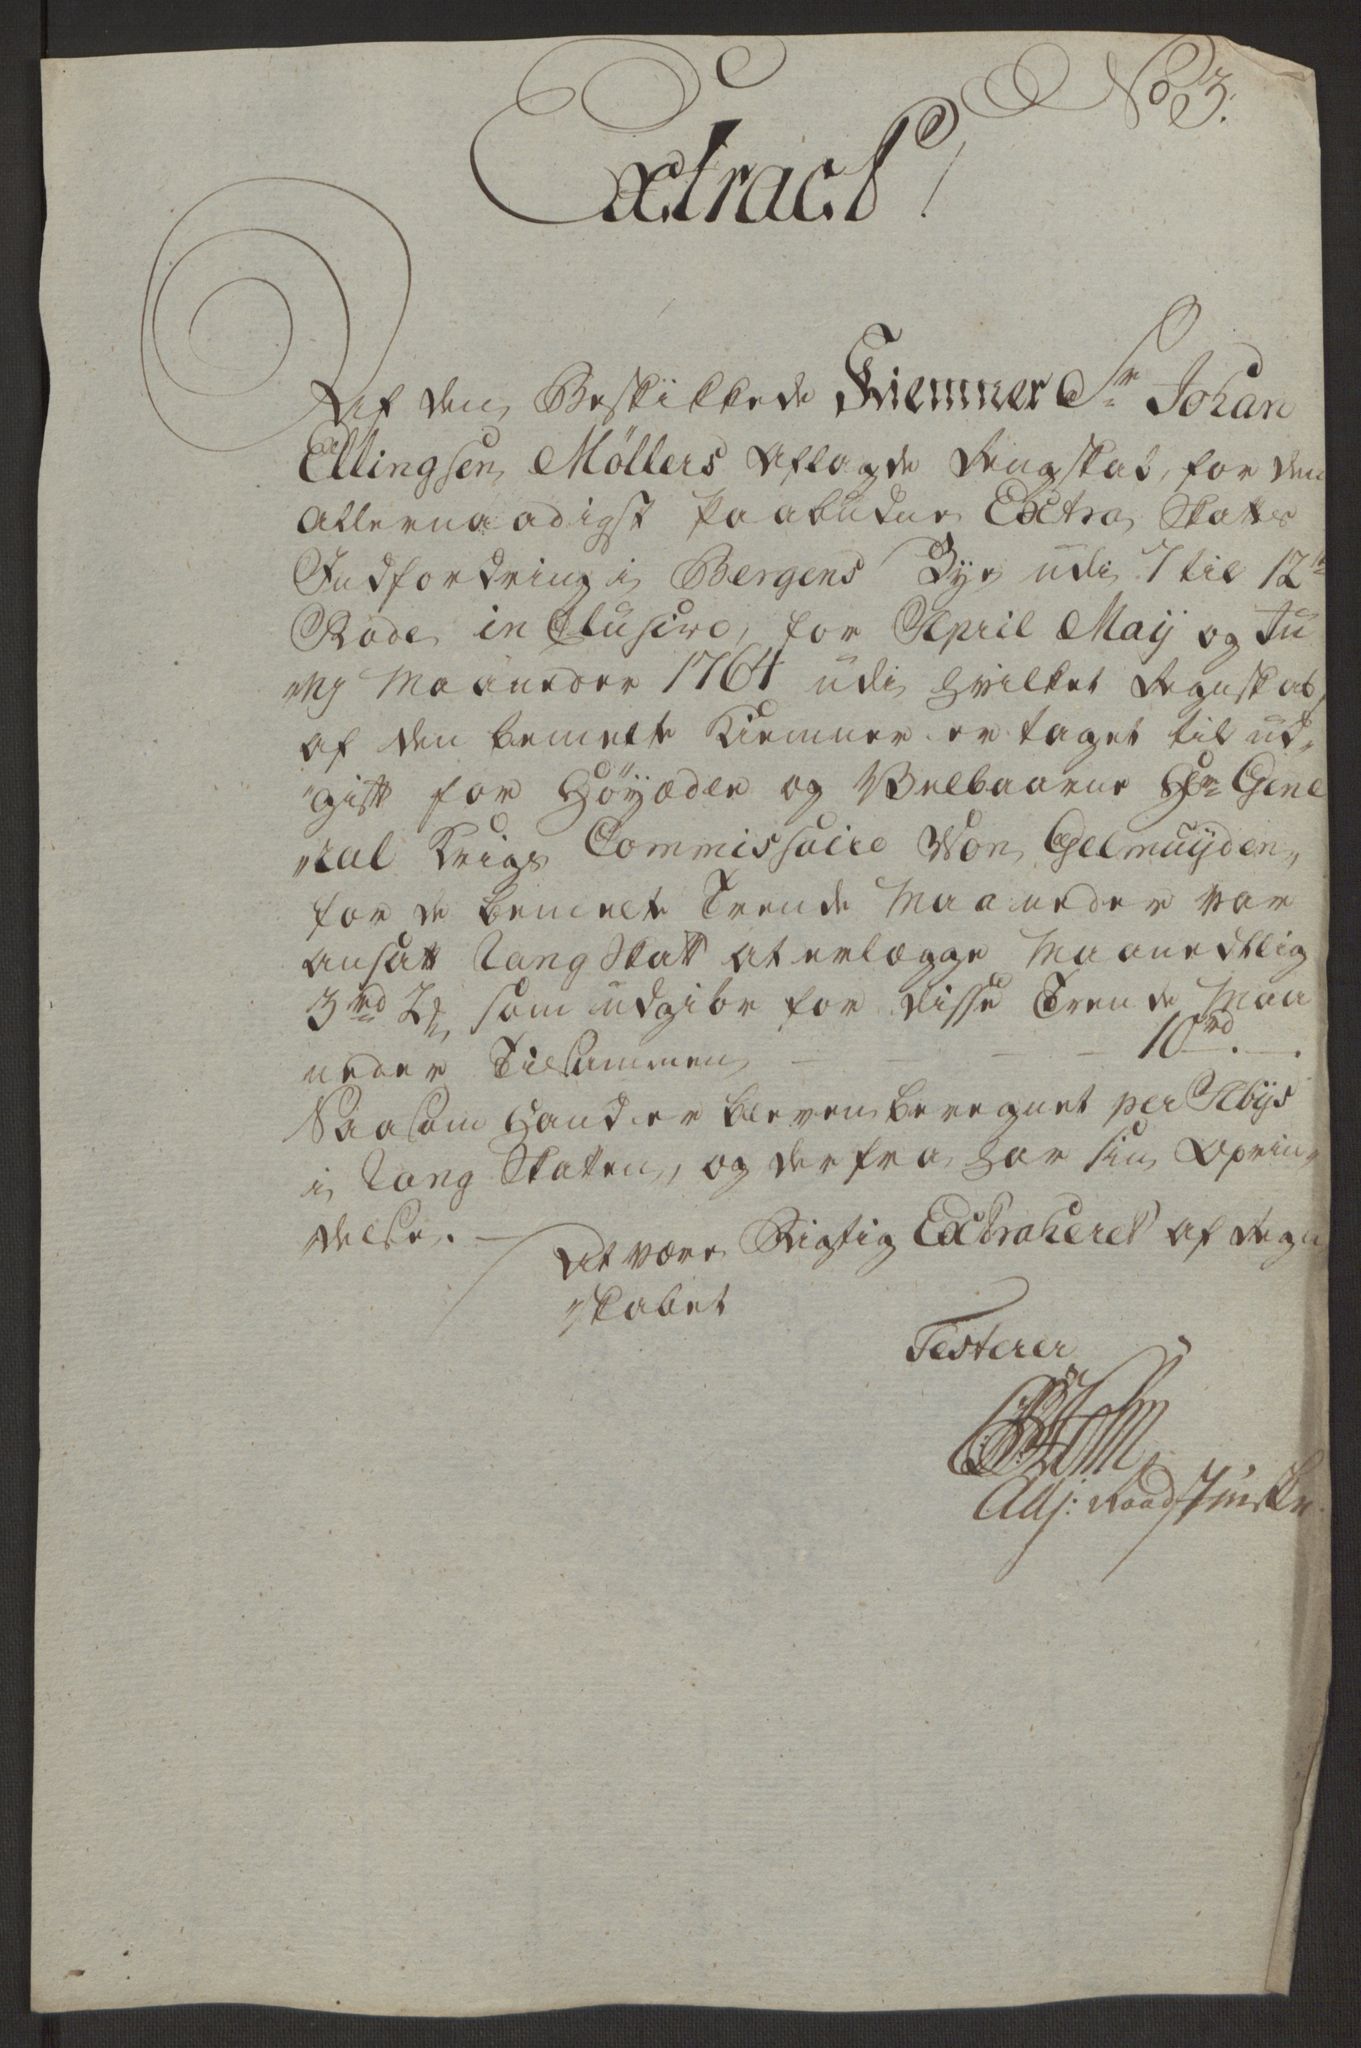 No 3.
Extract!
Af den Beskikkede Kiemner Sr Johan
Ellingsen Möllers aflagde Rengskab, for den
allernaadigst paabudne Extra Skattes
Indfordring i Bergens Bye udi 7 til 12te
Rode inclusive, for April Maÿ og Ju
nÿ Maaneder 1764 udi hvilket Regnskab,
af den bemelte Kiemner er taget til ud-
gift for Höÿædle og Velbaarne Hr Gene
ral Krigs Commissaire Von Gelmuÿden,
for de bemelte Trende Maaneder var
ansatt Rang Skatt at erlægge Maanedtlig
3 rd 2 som udgiör for disse Trende Maa
neder Tilsammen — — — — 10 rd. —.
Saasom Hand er bleven beregnet per Abÿs
i Rang Skatten, og derfra har sin Oprin-
delse. —
At være Rigtig Extraheret af Regn
skabet
Testerer
Adj: Raadstueskr.